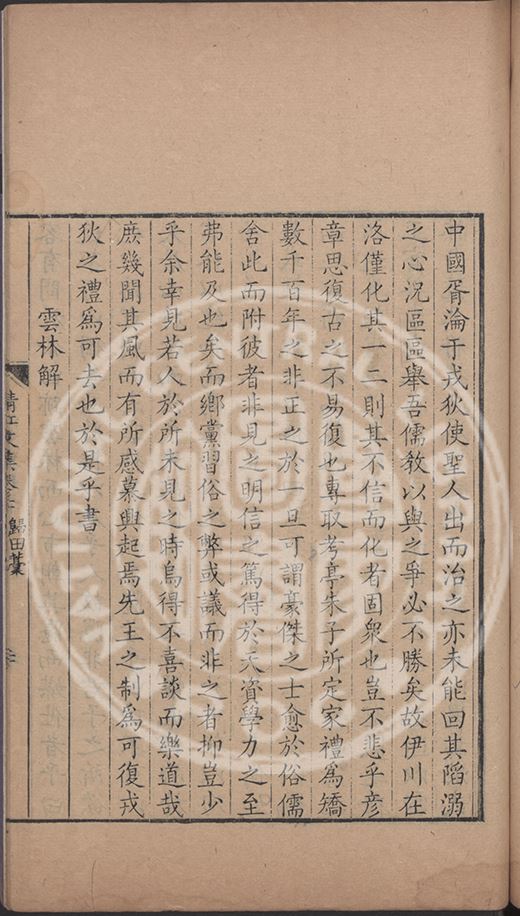 中國胥淪于戎狄使聖人出而治之亦未能回其陷溺
之心況區區舉吾儒教以與之爭必不勝矣故伊川在
洛僅化其一二則其不信而化者固衆也豈不悲乎彥
章思復古之不易復也專取考亭朱子所定家禮爲矯
數千百年之非正之於一旦可謂豪傑之士愈於俗儒
舍此而附彼者非見之明信之篤得於天資學力之至
弗能及也矣而鄉黨習俗之弊或議而非之者抑豈少
乎余幸見若人於所未見之時烏得不喜談而樂道哉
庶幾聞其風而有所感慕興起焉先王之制爲可復戎
狄之禮爲可去也於是乎書
雲林解
清江文集卷二 歸田藁